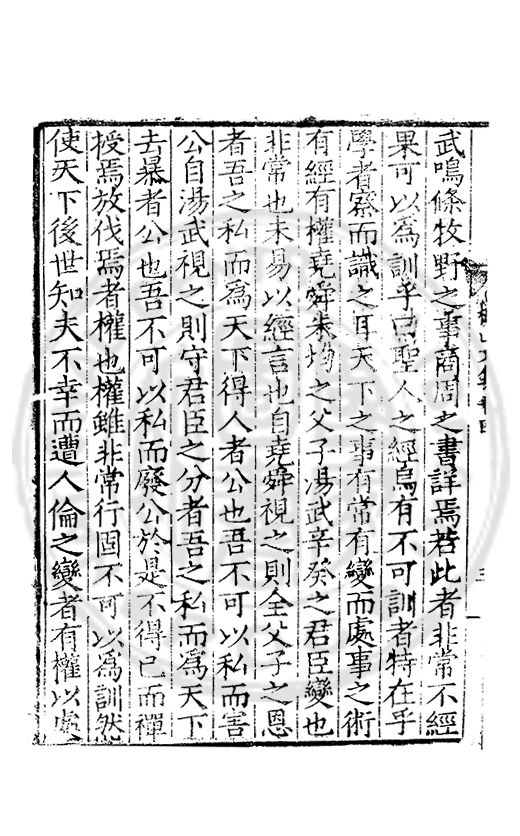 武鳴條牧野之事商周之書詳焉若此者非常不經
果可以為訓乎曰聖人之經烏有不可訓者特在乎
學者察而識之耳天下之事有常有變而處事之術
有經有權堯舜朱均之父子湯武辛癸之君臣變也
非常也未易以經言也自堯舜視之則全父子之恩
者吾之私而為天下得人者公也吾不可以私而害
公自湯武視之則守君臣之分者吾之私而為天下
去暴者公也吾不可以私而廢公於是不得已而禪
授焉放伐焉者權也權雖非常行固不可以為訓然
使天下後世知夫不幸而遭人倫之變者有權以處